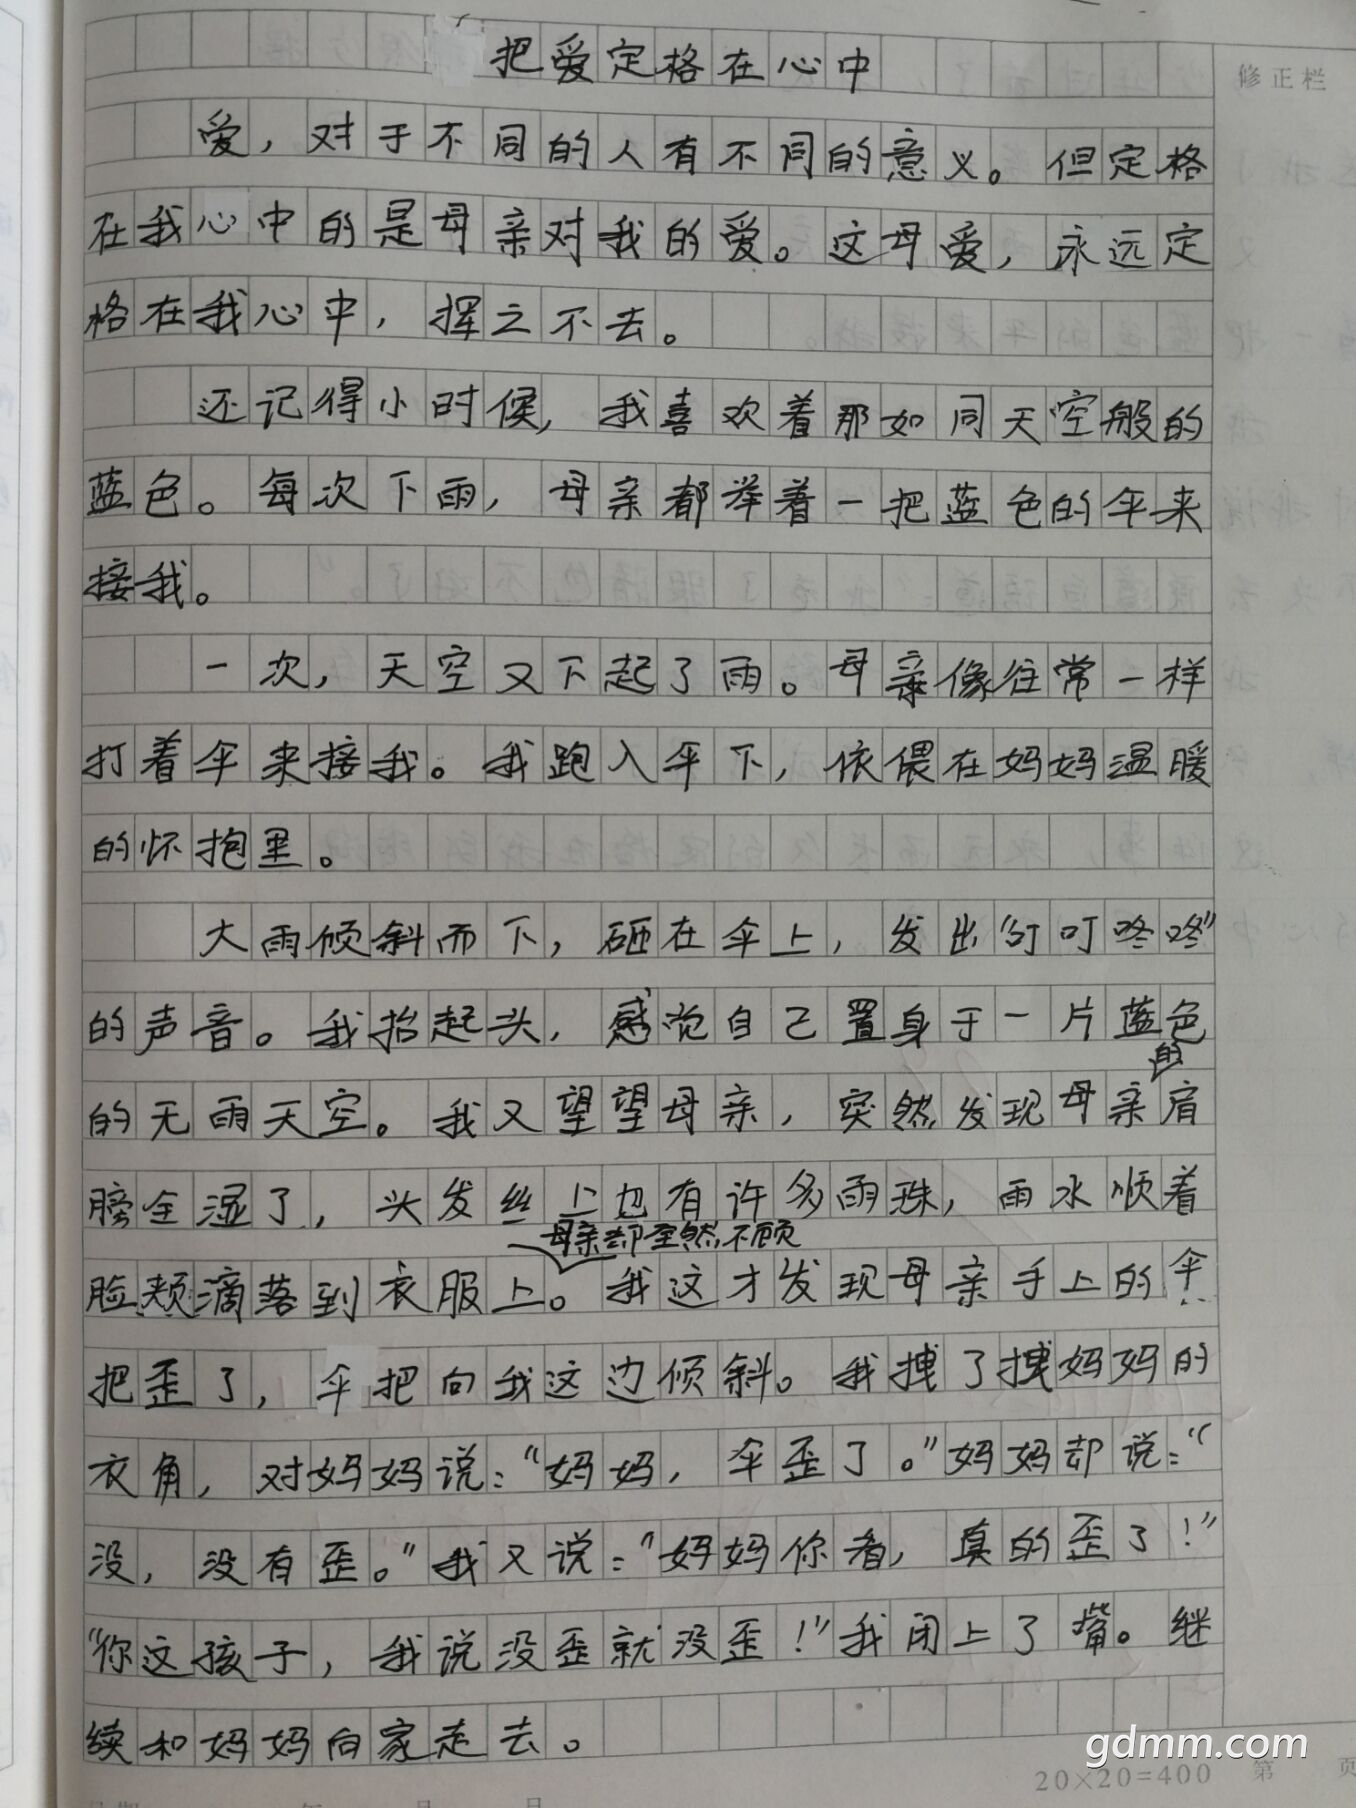 把爱定格在心中
修正栏
爱，对于不同的人有不同的意义。但定格
在我心中的是母亲对我的爱。这母爱，永远定
格在我心中，挥之不去。
还记得小时候，我喜欢着那如同天空般的
蓝色。每次下雨，母亲都举着一把蓝色的伞来
接我。
一次，天空又下起了雨。母亲像往常一样
打着伞来接我。我跑入伞下，依偎在妈妈温暖
的怀抱里。
大雨倾斜而下，砸在伞上，发出“叮叮咚咚”
的声音。我抬起头，感觉自己置身于一片蓝色
的无雨天空。我又望望母亲，突然发现母亲的肩
膀全湿了，头发丝上也有许多雨珠，雨水顺着
脸颊滴落到衣服上母亲却全然不顾。我这才发现母亲手上的伞
把歪了，伞把向我这边倾斜。我拽了拽妈妈的
衣角，对妈妈说：“妈妈，伞歪了。”妈妈却说：“
没，没有歪。”我又说：“妈妈你看，真的歪了！”
“你这孩子，我说没歪就没歪！”我闭上了嘴。继
续和妈妈向家走去。
gdmm.com
20×20=400 第 页